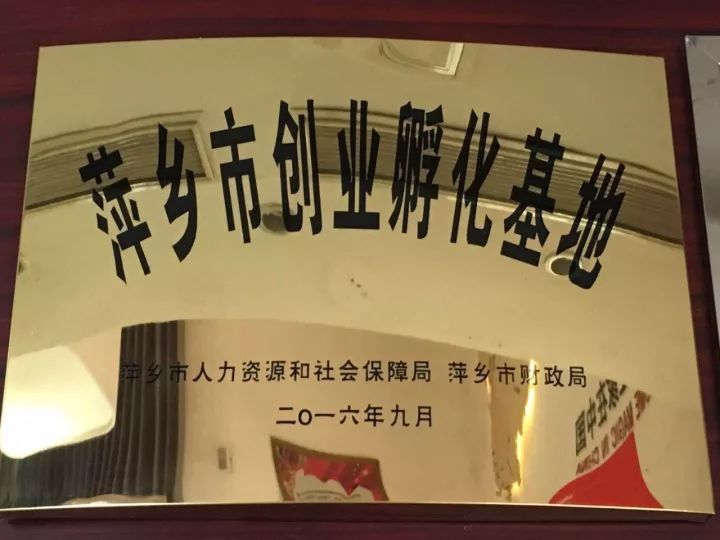 萍乡市创业孵化基地
萍乡市人力资源和社会保障局 萍乡市财政局
二O一六年九月